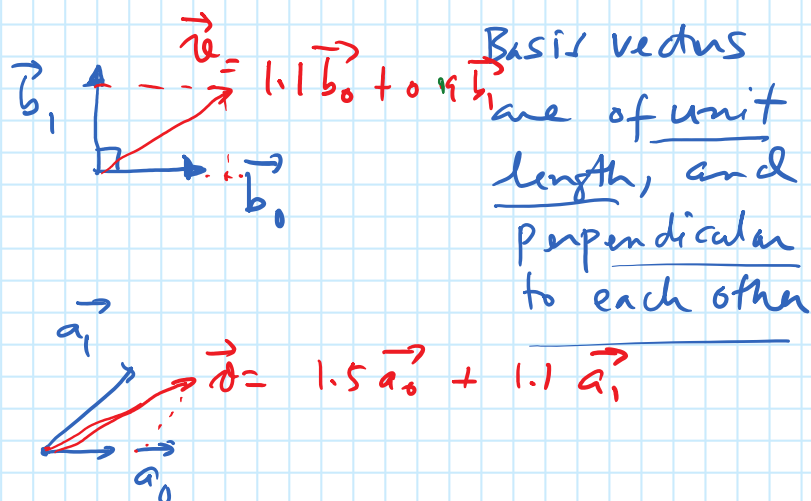 v⃗ = 1.1 b⃗₀ + 0.9 b⃗₁
b⃗₁
b⃗₀
Basis vectors
are of unit
length, and
perpendicular
to each other
a⃗₁
v⃗ = 1.5 a⃗₀ + 1.1 a⃗₁
a⃗₀